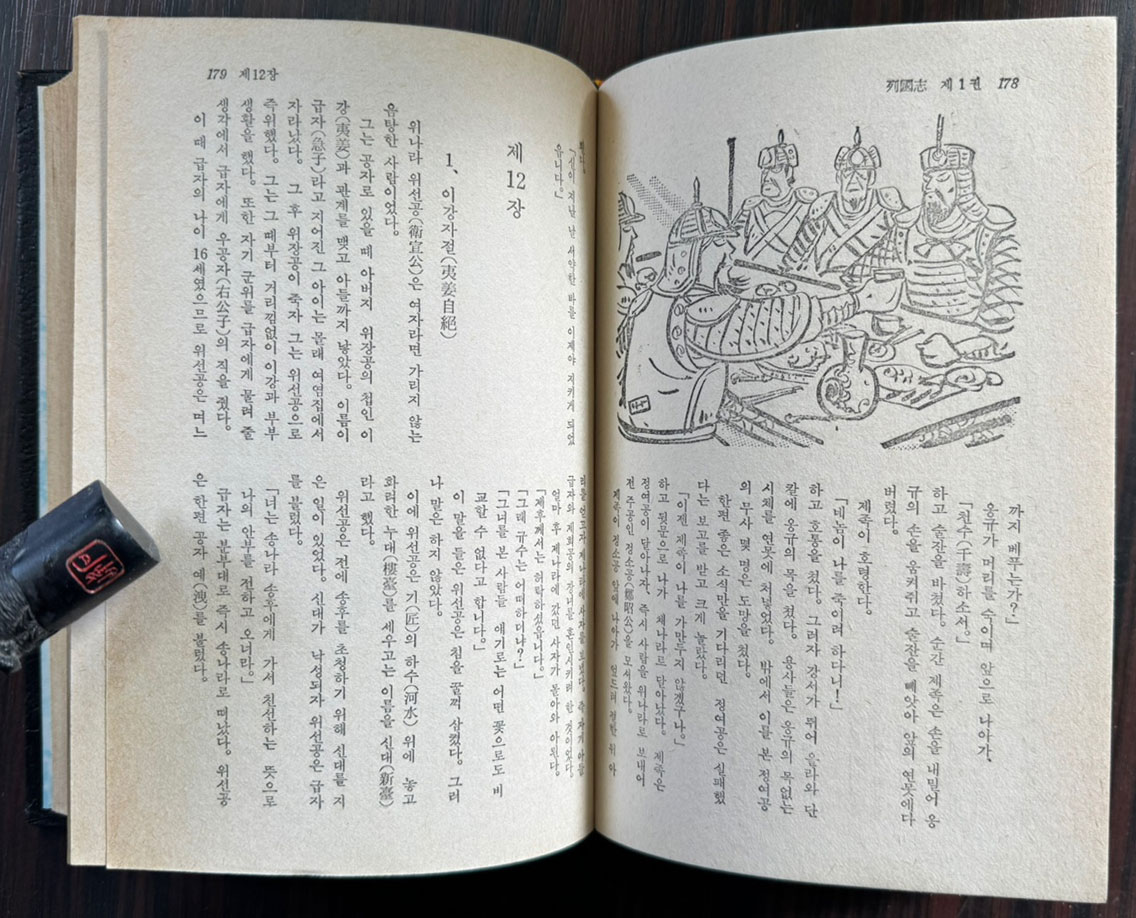 列國志 제 1 권 178
까지 베푸는가?」
옹규가 머리를 숙이며 앞으로 나아가,
「천수(千壽)하소서.」
하고 술잔을 바쳤다. 순간 제족은 손을 내밀어 옹
규의 손을 움켜쥐고 술잔을 빼앗아 앞의 연못에다
버렸다.
제족이 호령한다.
「네놈이 나를 죽이려 하다니!」
하고 호통을 쳤다. 그러자 강서가 뛰어 올라와 단
칼에 옹규의 목을 쳤다. 용사들은 옹규의 목없는
시체를 연못에 처넣었다. 밖에서 이를 본 정여공
의 무사 몇 명은 도망을 쳤다.
한편 좋은 소식만을 기다리던 정여공은 실패했
다는 보고를 받고 크게 놀랐다.
「이젠 제족이 나를 가만두지 않겠구나.」
하고 뒷문으로 나가 채나라로 달아났다. 제족은
정여공이 달아나자, 즉시 사람을 위나라로 보내어
전 주공인 정소공(鄭昭公)을 모셔왔다.
제족이 정소공 앞에 나아가 엎드려 절한 뒤 아
179 제12장
「신이 지난 날 새약한 바를 이제야 지키게 되었
읍니다.」
제12장
1、이강자절(夷姜自絕)
위나라 위선공(衛宣公)은 여자라면 가리지 않는
음탕한 사람이었다.
그는 공자로 있을 때 아버지 위장공의 첩인 이
강(夷姜)과 관계를 맺고 아들까지 낳았다. 이름이
급자(急子)라고 지어진 그 아이는 몰래 여염집에서
자라났다. 그 후 위장공이 죽자 그는 위선공으로
즉위했다. 그는 그 때부터 거리낌없이 이강과 부부
생활을 했다. 또한 자기 군위를 급자에게 물려 줄
생각에서 급자에게 우공자(右公子)의 직을 줬다.
이 때 급자의 나이 16세였으므로 위선공은 며느
리를 얻고자 제나라에 사자를 보냈다. 즉 자기 아들
급자와 제희공의 장녀를 혼인시키려 한 것이었다.
얼마 후 제나라에 갔던 사자가 돌아와 아뢴다.
「제후께서는 허락하셨읍니다.」
「그래 규수는 어떠하더냐?」
「그녀를 본 사람들 얘기로는 어떤 꽃으로도 비
교할 수 없다고 합니다.」
이 말을 들은 위선공은 침을 꿀꺽 삼켰다. 그러
나 말은 하지 않았다.
이에 위선공은 기(匠)의 하수(河水) 위에 높고
화려한 누대(樓臺)를 세우고는 이름을 신대(新臺)
라고 했다.
위선공은 전에 송후를 초청하기 위해 신대를 지
은 일이 있었다. 신대가 낙성되자 위선공은 급자
를 불렀다.
「너는 송나라 송후에게 가서 친선하는 뜻으로
나의 안부를 전하고 오너라.」
급자는 분부대로 즉시 송나라로 떠났다. 위선공
은 한편 공자 예(洩)를 불렀다.